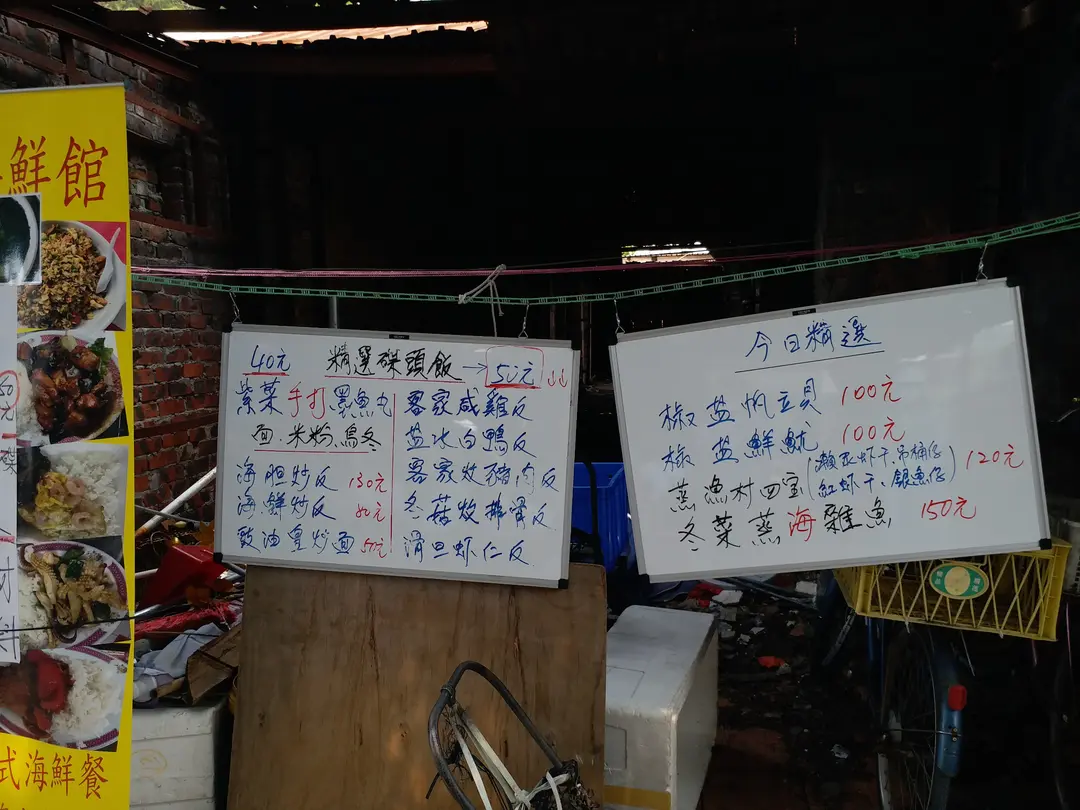 鮮館
式海鮮餐
40元 精選碟頭飯→50元
紫菜手打墨魚丸
面.米粉.烏冬
海胆炒反 130元
海鮮炒反
豉油皇炒面 50元
客家咸雞反
盐水白鴨反
客家炆豬肉反
冬菇炆排骨反
滑旦虾仁反
今日精選
椒盐帆立貝 100元
椒盐鮮魷 100元
蒸漁村四宝(瀨尿虾干.吊桶仔 紅虾干.銀魚仔) 120元
冬菜蒸海雜魚 150元